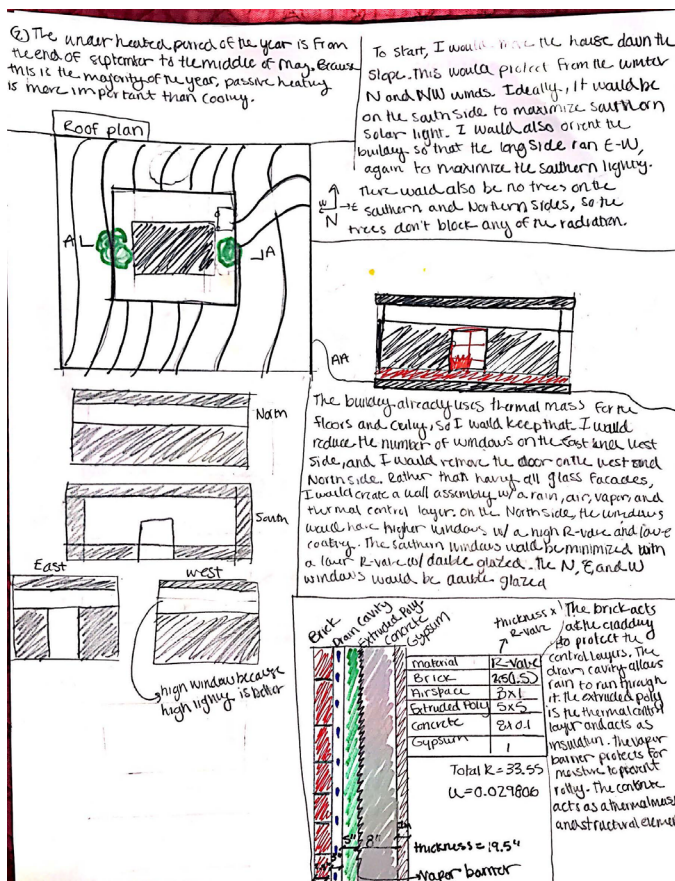 2.) The under heated period of the year is from
the end of september to the middle of may. Because
this is the majority of the year, passive heating
is more important than cooling.
To start, I would move the house down the
slope. This would protect from the winter
N and NW winds. Ideally, it would be
on the south side to maximize southern
solar light. I would also orient the
building so that the long side ran E-W,
again to maximize the southern lighting.
There would also be no trees on the
southern and Northern sides, so the
trees don't block any of the radiation.
W E
N
Roof plan
A
A
AA
North
South
East
west
high window because
high lighting is better
The building already uses thermal mass for the
floors and ceiling, so I would keep that. I would
reduce the number of windows on the East and West
side, and I would remove the door on the west and
North side. Rather than having all glass facades,
I would create a wall assembly w/ a rain, air, vapor, and
thermal control layer. on the North side, the windows
would have higher windows w/ a high R-value and low e
coating. The southern windows would be minimized with
a lower R-value w/ double glazed. The N, E, and W
windows would be double glazed
Brick
Drain Cavity
Extruded Poly
Concrete
Gypsum
thickness x
R-value
material R-value
Brick
Airspace 3x1
Extruded Poly 5x5
Concrete 8x0.1
Gypsum 1
Total R = 33.55
U=0.029806
5"
8"
thickness = 19.5"
vapor barrier
The brick acts
as the cladding
to protect the
control layers. The
drain cavity allows
rain to run through
it. the extruded poly
is the thermal control
layer and acts as
insulation. The vapor
barrier protects for
moisture to prevent
The concrete
acts as a thermal mass
and structural element